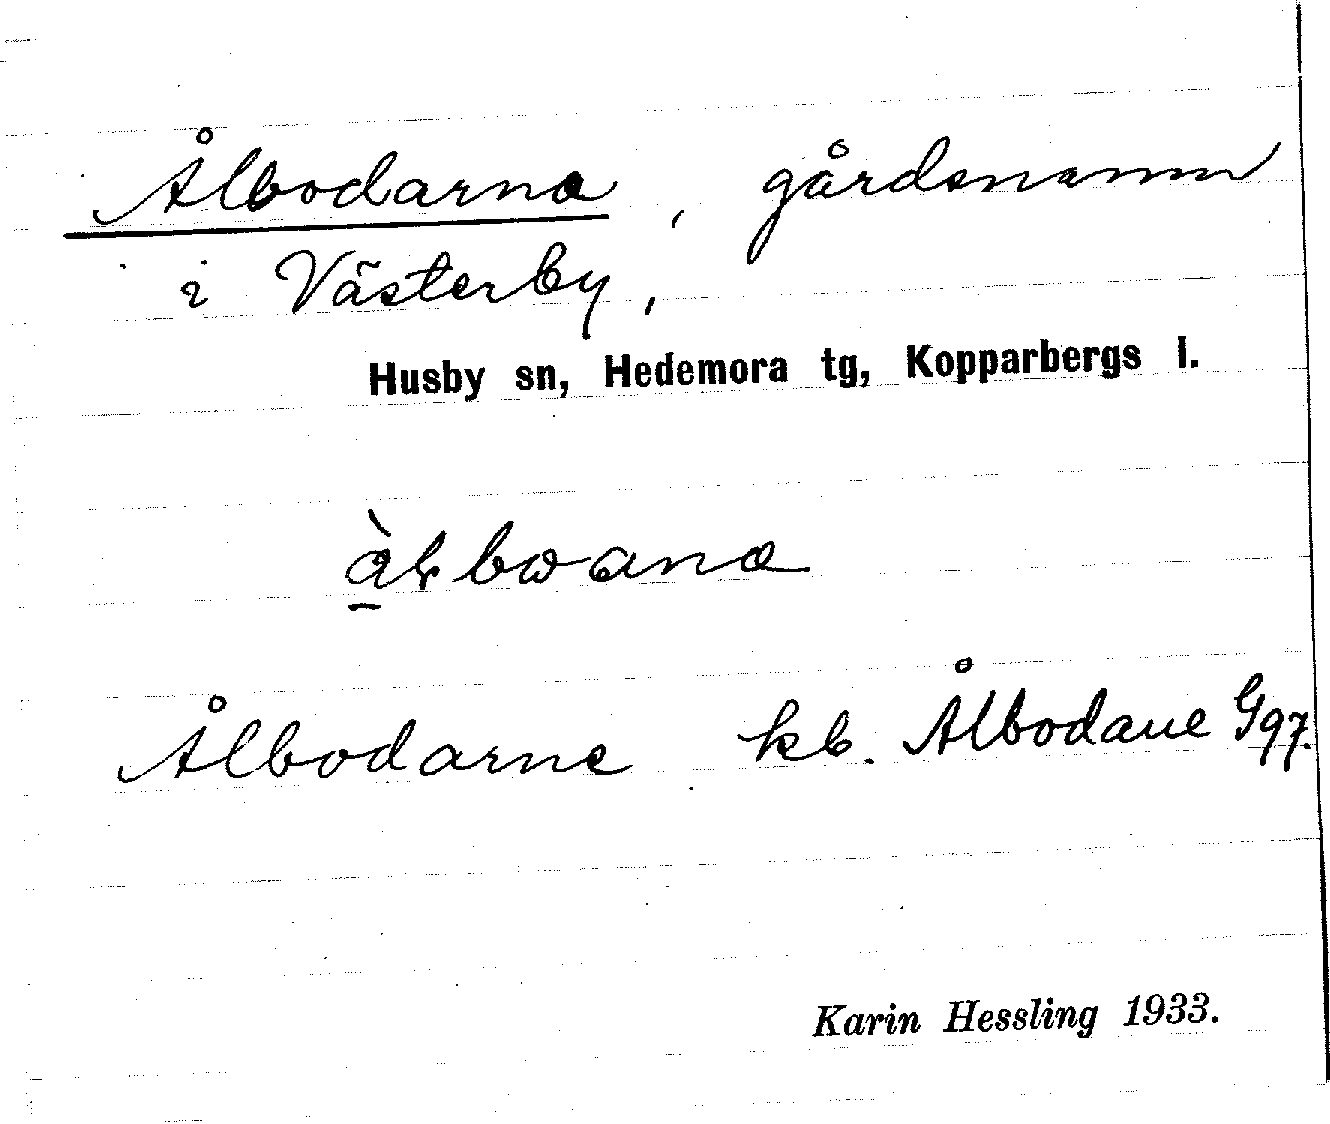 Ålbodarna, gårdsnamn
i Västerby,
Husby sn, Hedemora tg, Kopparbergs l.
Ålbodarne kb. Ålbodane Gg7.
Karin Hessling 1933.